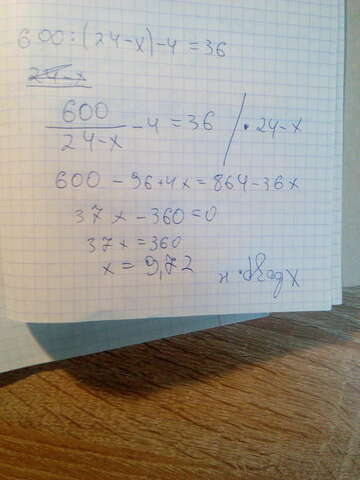 600:(24-x)-4=36
24-x
600/24-x - 4 = 36 / · 24-x
600 - 96+4x = 864-36x
37x - 360=0
37x = 360
x = 9,72